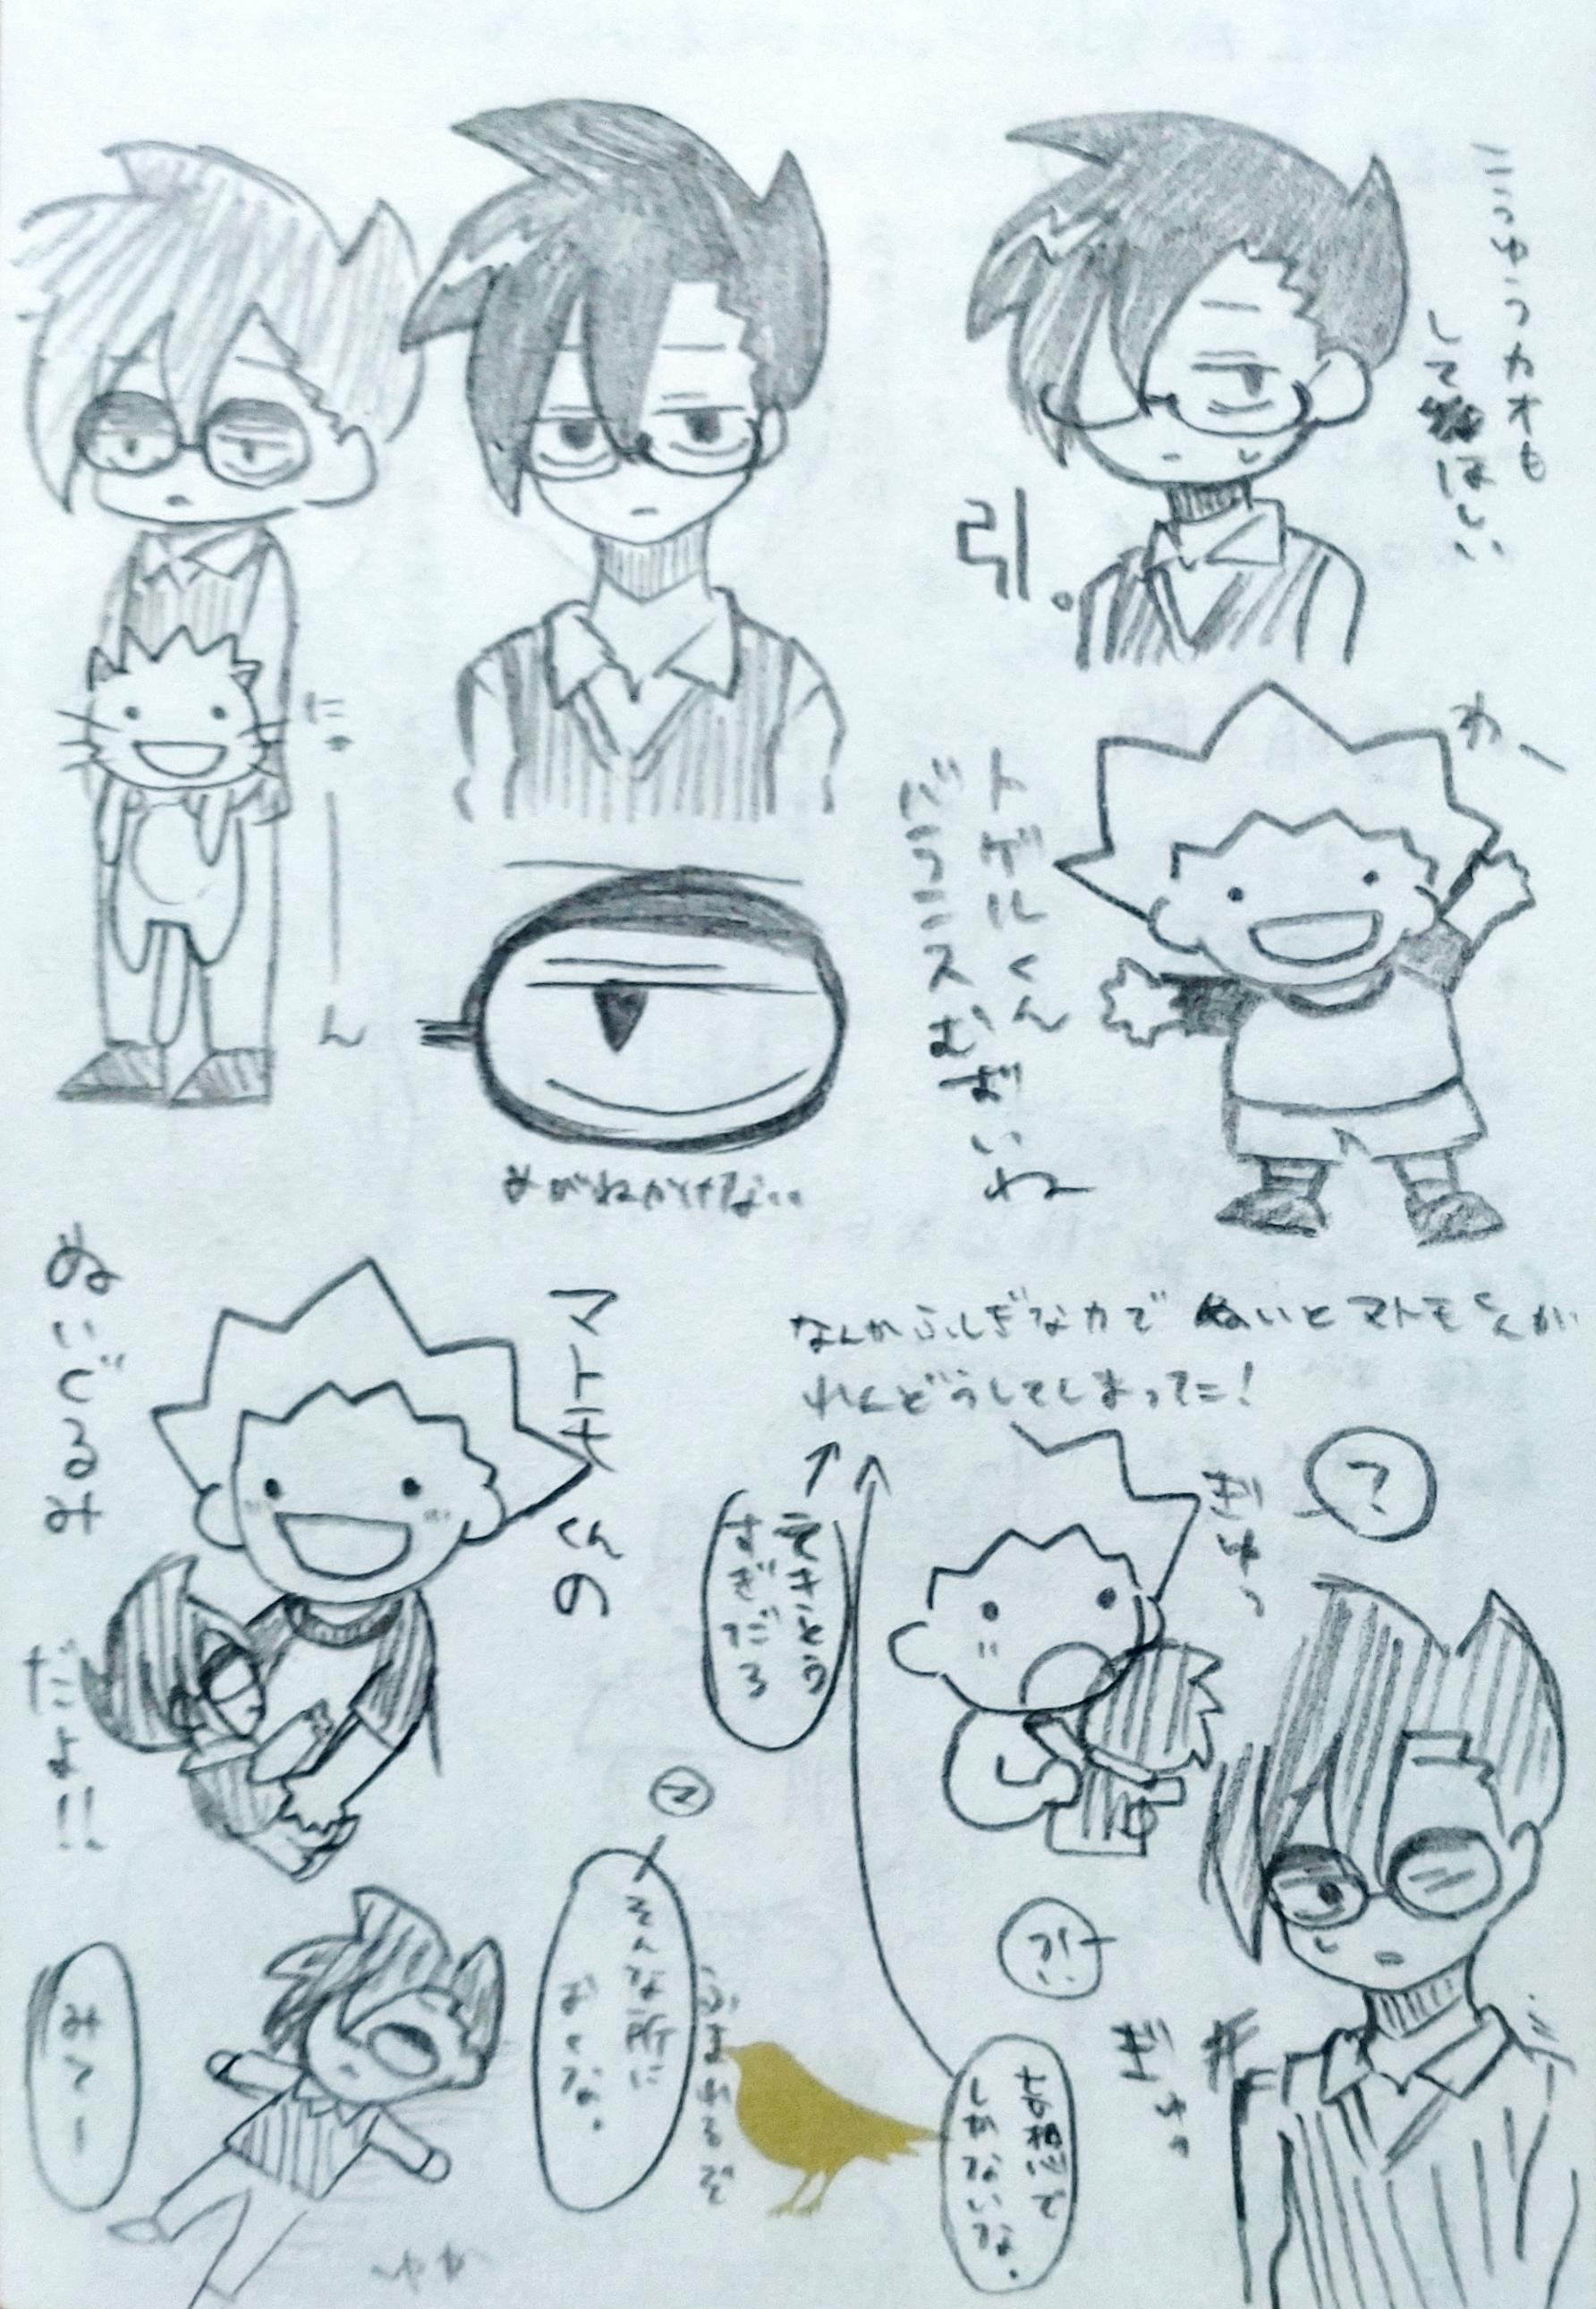 こうゆうカオも
してほしい
引。
にゃーん
わー
トゲルくん
バランスむずいね
めがねかけない
マトモくんの
ぬいぐるみ
だよ!!
なんかふしぎな力でぬいとマトモくんが
れんどうしてしまった!
ぎゅっ
?
すぎだろ
?!
ぎゅっ
マ
そんな所に
おくな。
ふまれるぞ
しねないな。
みてー